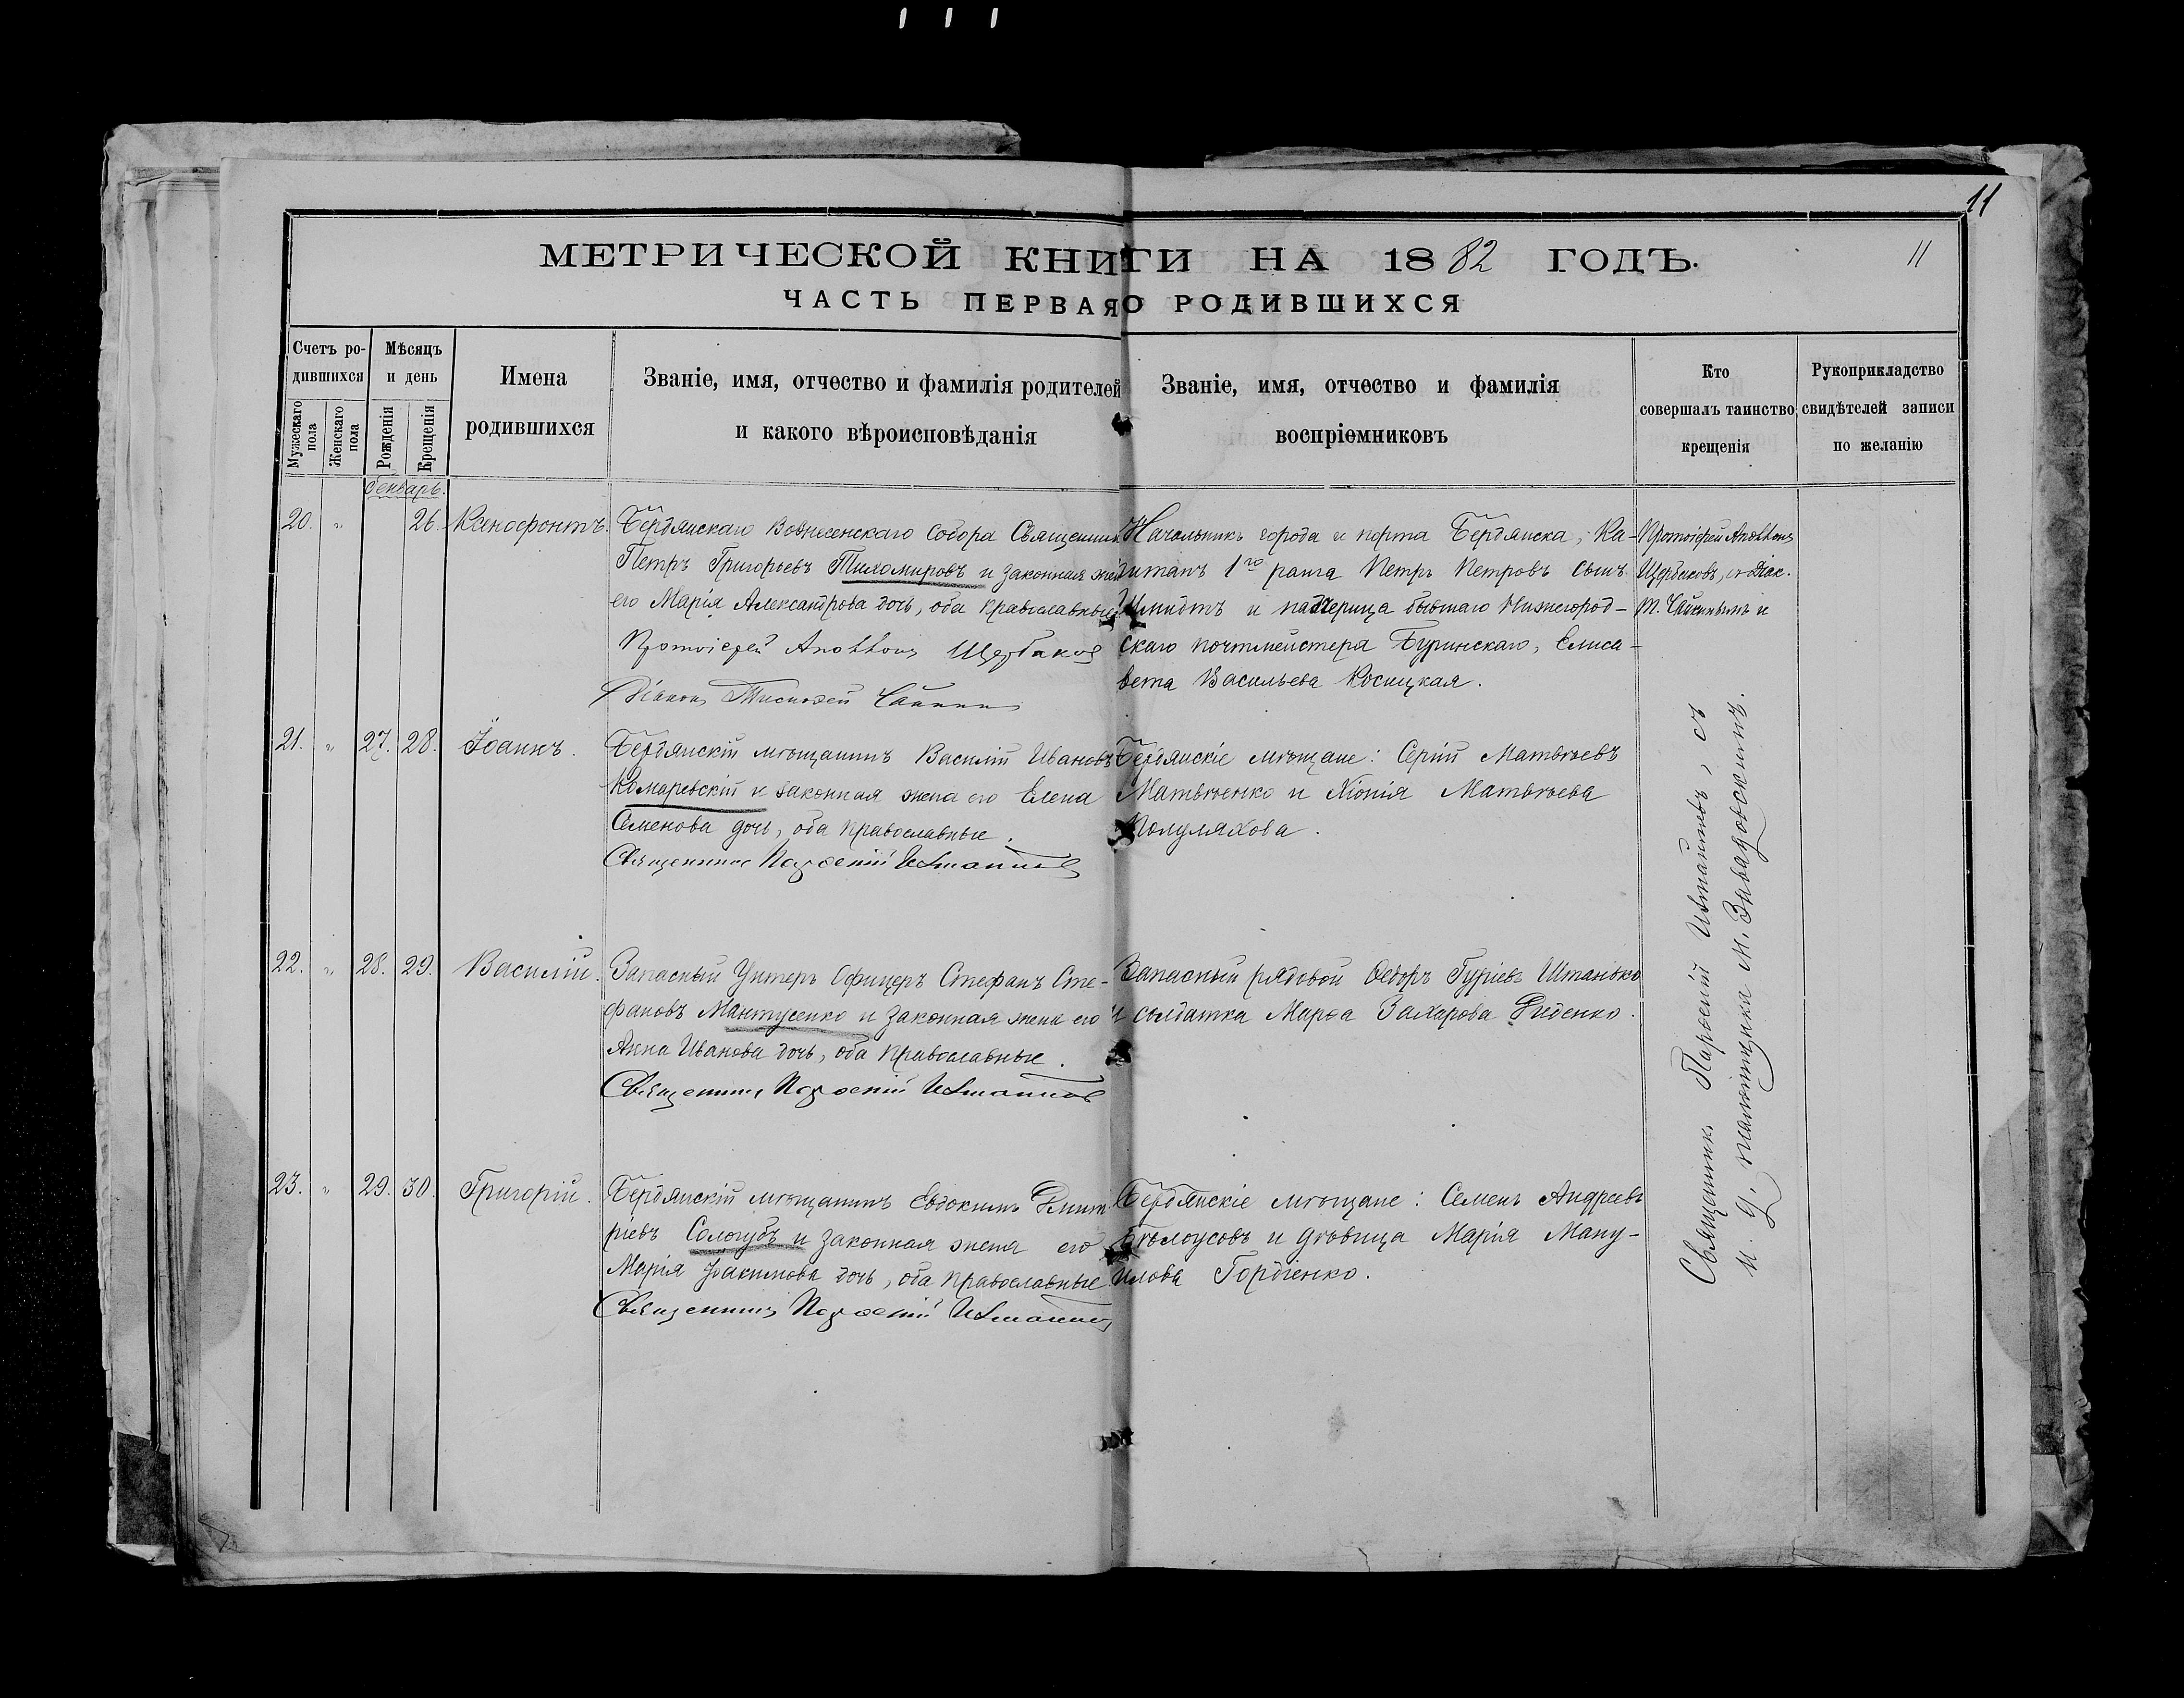 11
МЕТРИЧЕСКОЙ КНИГИ НА 1882 ГОДЪ.
11
ЧАСТЬ ПЕРВАЯ О РОДИВШИХСЯ
Счетъ ро-
дившихся
Мужескаго
пола
Женскаго
пола
Мѣсяцъ
и день
Рожденія
Крещенія
Имена
родившихся
Званіе, имя, отчество и фамилія родителей
и какого вѣроисповѣданія
Званіе, имя, отчество и фамилія
воспріемниковъ
Кто
совершалъ таинство
крещенія
Рукоприкладство
свидѣтелей записи
по желанію
Генварь.
20. " 26. Ксенофонтъ.
Бердянскаго Вознесенскаго Собора Священникъ
Петръ Григорьевъ Тихомировъ и законная жена
его Марія Александрова дочь, оба православные
Протоіерей Аполлонъ Щербаковъ
Діаконъ Тимоѳей
Начальникъ города и порта Бердянска, Ка-
питанъ 1го ранга Петръ Петровъ сынъ
Шмидтъ и падчерица бывшаго Нижегород-
скаго почтмейстера Буринскаго, Елиса-
вета Васильева Косицкая.
Протоіерей Аполлонъ
Щербаковъ, съ діак.
Т. и
21. " 27. 28. Іоаннъ.
Бердянскій мѣщанинъ Василій Ивановъ
Комаревскій и законная жена его Елена
Семенова дочь, оба православные.
Священникъ Парѳеній
Бердянскіе мѣщане: Сергій Матвѣевъ
Матвѣенко и Хіонія Матвѣева
Полуляхова.
22. " 28. 29. Василій.
Запасный Унтеръ Офицеръ Стефанъ Сте-
фановъ Мантусенко и законная жена его
Анна Иванова дочь, оба православные.
Священникъ Парѳеній
Запасный рядовой Ѳедоръ Гуріевъ Штанько
и солдатка Марѳа Захарова Диденко.
23. " 29. 30. Григорій.
Бердянскій мѣщанинъ Евдокимъ Димит-
ріевъ Сологубъ и законная жена его
Марія Іоакимова дочь, оба православные.
Священникъ Парѳеній
Бердянскіе мѣщане: Семенъ Андреевъ
Бѣлоусовъ и дѣвица Марія Ману-
илова Гордіенко.
Священникъ Парѳеній съ
и. д. псаломщика М. Завадовскимъ.